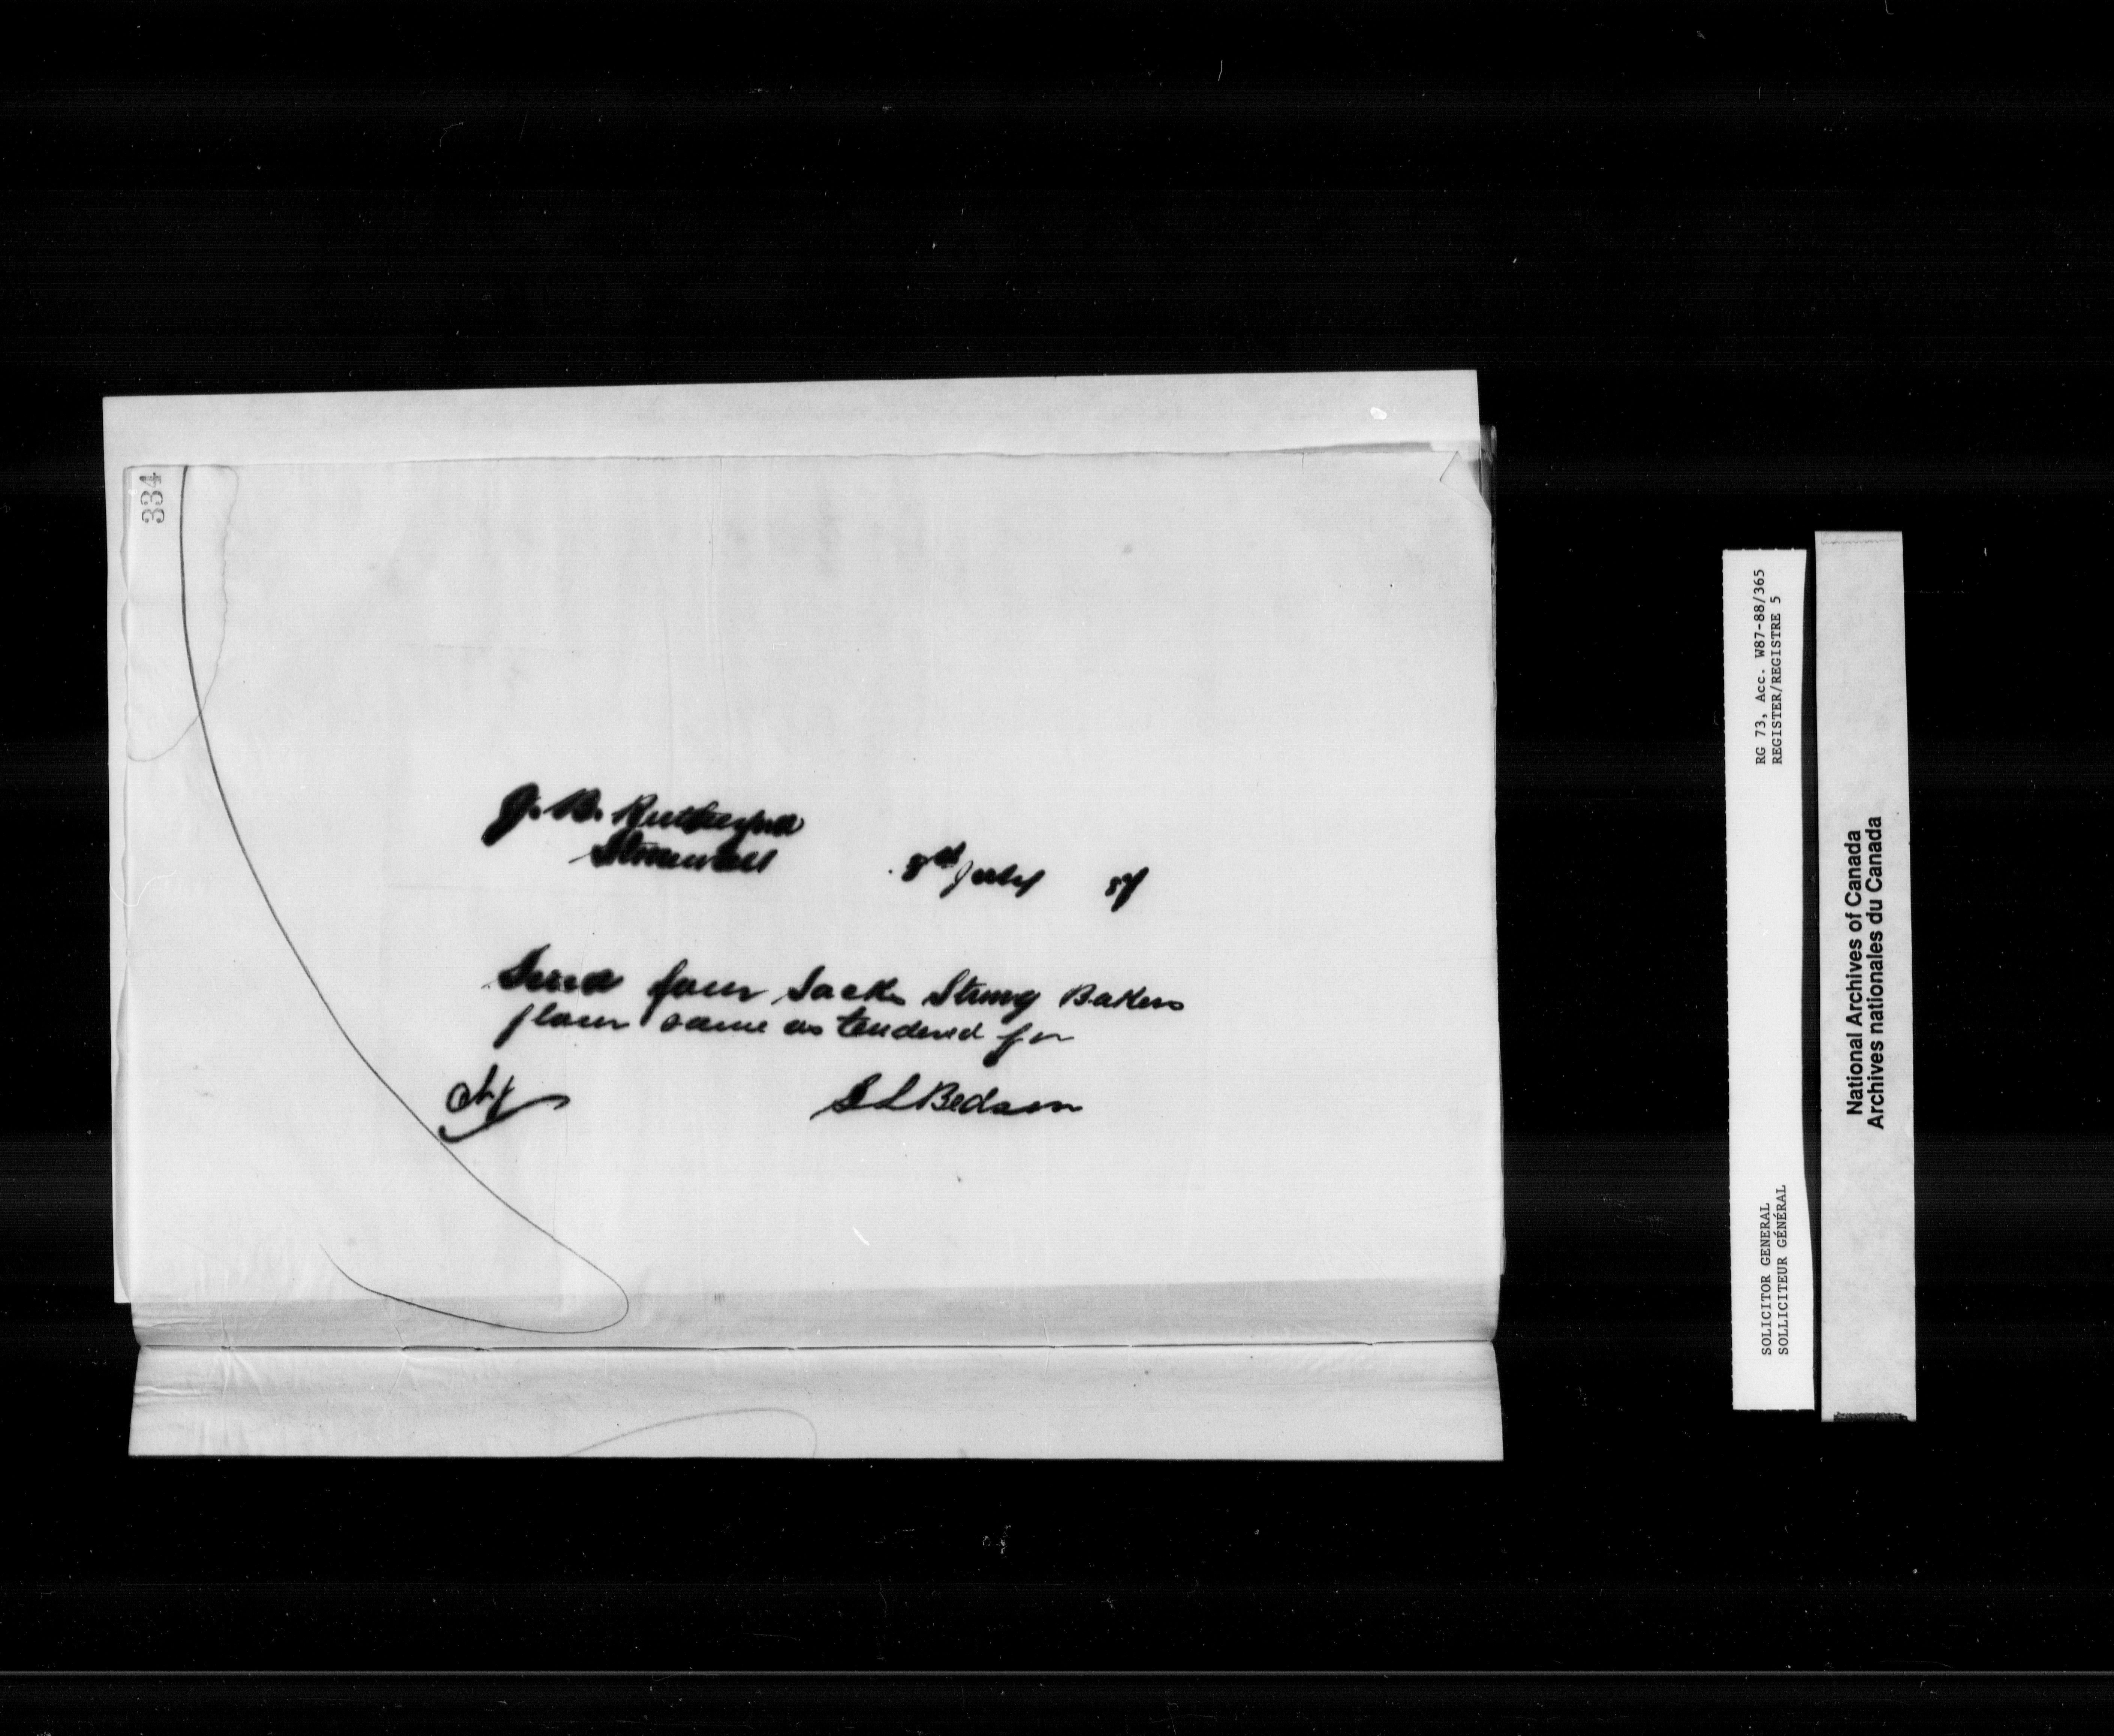 334
J. B. Rutherford
Stonewall
8th July 87
Send four Sacks Strong Bakers
flour same as tendered for
S L Bedson
RG 73, Acc. W87-88/365
REGISTER/REGISTRE 5
SOLICITOR GENERAL
SOLLICITEUR GÉNÉRAL
National Archives of Canada
Archives nationales du Canada